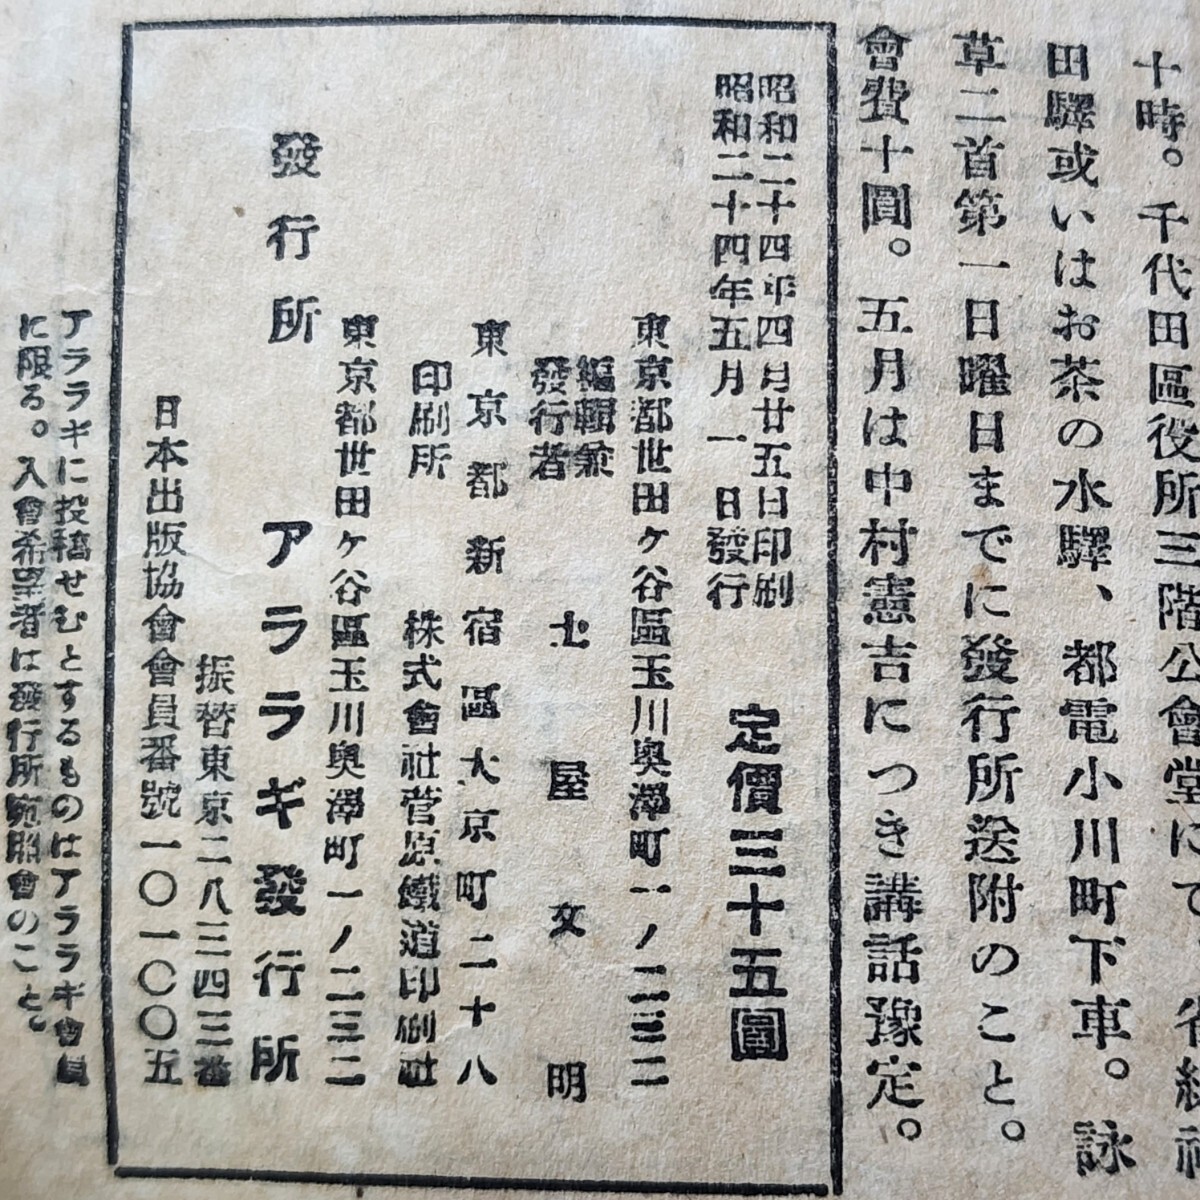 十時。千代田區役所三階公會堂にて。省線神
田驛或いはお茶の水驛、都電小川町下車。詠
草二首第一日曜日までに發行所送附のこと。
會費十圓。五月は中村憲吉につき講話豫定。
昭和二十四年四月廿五日印刷
昭和二十四年五月一日發行
定價三十五圓
東京都世田ヶ谷區玉川奧澤町一ノ二三二
編輯兼
發行者
土屋文明
東京都新宿區大京町二十八
印刷所
株式會社菅原鐵道印刷社
東京都世田ヶ谷區玉川奧澤町一ノ二三二
發行所
アララギ發行所
振替東京二八三四三番
日本出版協會會員番號一〇一〇〇五
アララギに投稿せむとするものはアララギ會員
に限る。入會希望者は發行所宛照會のこと。